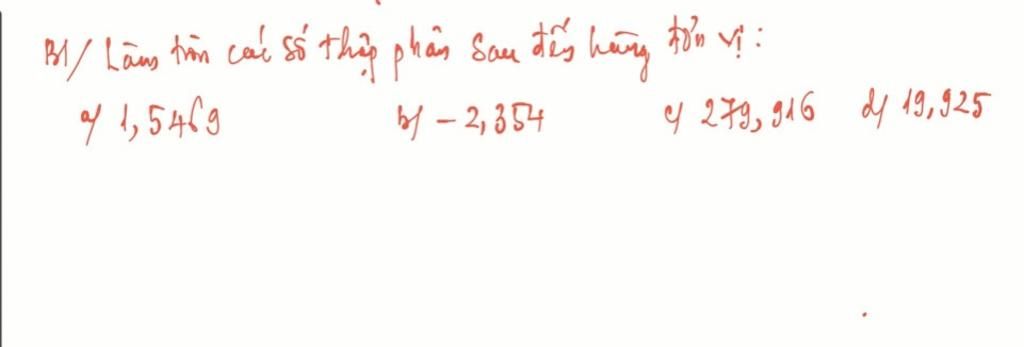 B1/ Làm tròn các số thập phân sau đến hàng đơn vị:
a/ 1,5469 b/ -2,354 c/ 279,916 d/ 19,925